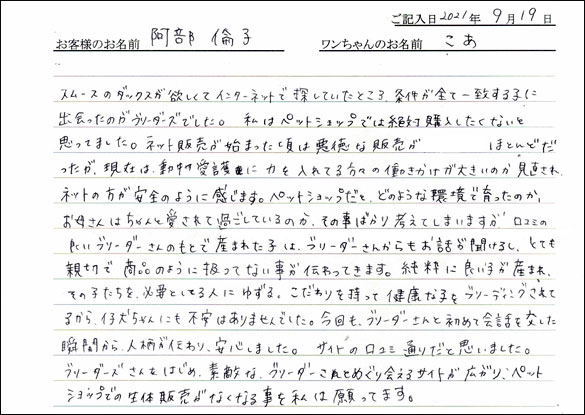 ご記入日2021年 9月19日
お客様のお名前 阿部 倫子 ワンちゃんのお名前 こあ
スムースのダックスが欲しくてインターネットで探していたところ、条件が全て一致する子に
出会ったのがブリーダーズでした。 私はペットショップでは絶対購入したくないと
思ってました。ネット販売が始まった頃は悪徳な販売が ほとんどだ
ったが、現在は、動物愛護に力を入れてる方々の働きかけが大きいのか見直され、
ネットの方が安全のように感じます。ペットショップだと、どのような環境で育ったのか、
お母さんはちゃんと愛されて過ごしているのか、その事ばかり考えてしまいますが 口コミの
良いブリーダーさんのもとで産まれた子は、ブリーダーさんからもお話が聞けるし、とても
親切で商品のように扱ってない事が伝わってきます。純粋に良い子が産まれ、
その子たちを、必要としてる人にゆずる。こだわりを持って健康な子をブリーディングされて
るから、仔犬ちゃんにも不安はありませんでした。今回も、ブリーダーさんと初めて会話を交した
瞬間から、人柄が伝わり、安心しました。 サイトの口コミ通りだと思いました。
ブリーダーズさんをはじめ、素敵な、ブリーダーさんとめぐり会えるサイトが広がり、ペット
ショップでの生体販売がなくなる事を私は願ってます。